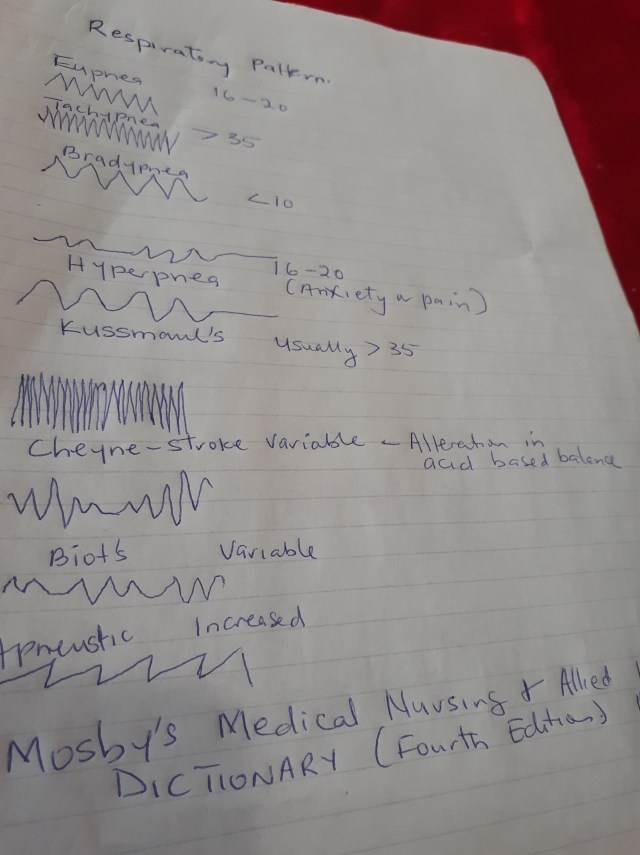 Respiratory Pattern.
Eupnea 16-20
Tachypnea > 35
Bradypnea < 10
Hyperpnea 16-20
(Anxiety or pain)
Kussmaul's usually > 35
Cheyne-stroke variable - Alteration in
acid based balance
Biot's Variable
Apneustic Increased
Mosby's Medical Nursing & Allied
DICTIONARY (Fourth Edition)